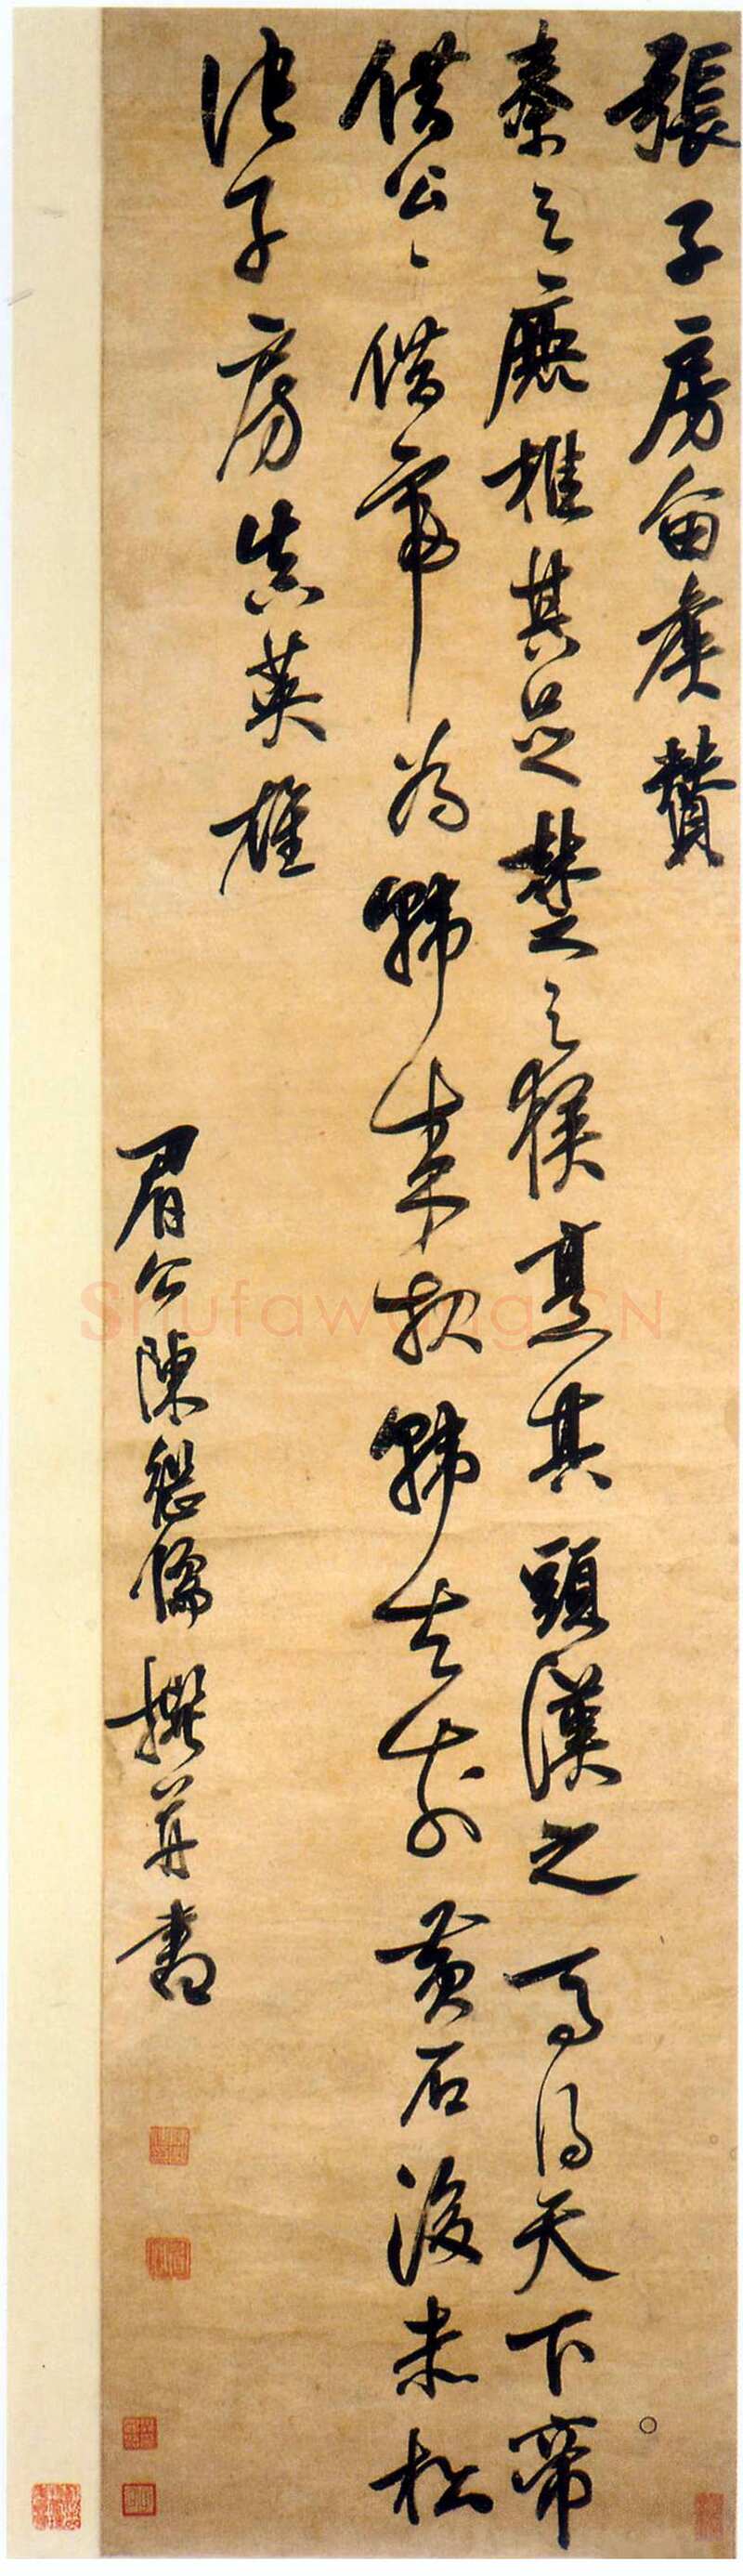 張子房留侯贊
秦之鹿椎其足楚之猴烹其頭漢之得天下帝
借公公借帝為韓來報韓去前黃石後赤松
張子房真英雄
眉公陳繼儒撰并書
Shufawang.CN